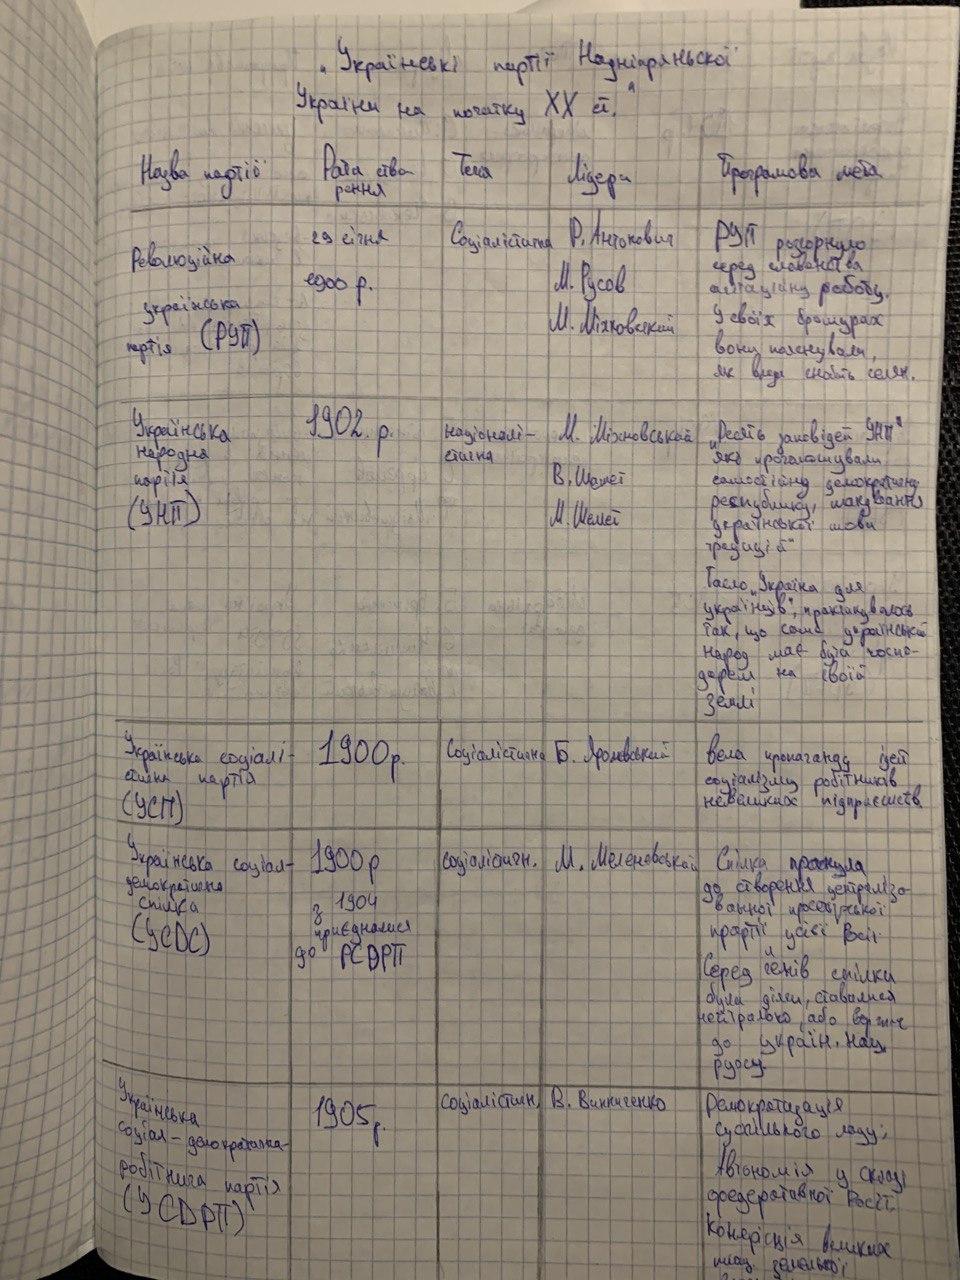 „Українські партії Наддніпрянської
України на початку XX ст."
Назва партії
Дата ство
рення
Течія
Лідери
Програмова мета
Революційна
українська
партія (РУП)
29 січня
1900 р.
Соціалістична
Р. Антонович
М. Русов
М. Міхновський
РУП розгорнуло
серед
агітаційну роботу.
У своїх брошурах
вони
як влада селян.
Українська
народна
партія
(УНП)
1902 р.
націоналі-
стична
М. Міхновський
В. Шемет
М. Шемет
„Десять заповідей УНП"
які проголошували
самостійну демократичну
республіку, шанування
української мови
традицій"
Гасло „Україна для
українців",
так, що саме український
народ має бути госпо-
дарем на своїй
землі
Українська соціалі-
стична партія
(УСП)
1900 р.
Соціалістична
Б. Ярошевський
вела пропаганду ідей
соціалізму робітників
невеликих підприємств
Українська соціал-
демократична
спілка
(УСДС)
1900 р
з 1904
приєдналися
до РСДРП
соціалістичн.
М. Меленевський
Спілка прагнула
до створення централізо-
ванної
партії усієї Росії
Серед членів спілки
були діячі, ставилися
або
до україн. нац.
руху
Українська
соціал-демократична
робітнича партія
(УСДРП)
1905 р.
соціалістичн.
В. Винниченко
Демократизація
суспільного ладу;
Автономія у складі
федеративної Росії
Конфіскація великих
земельної